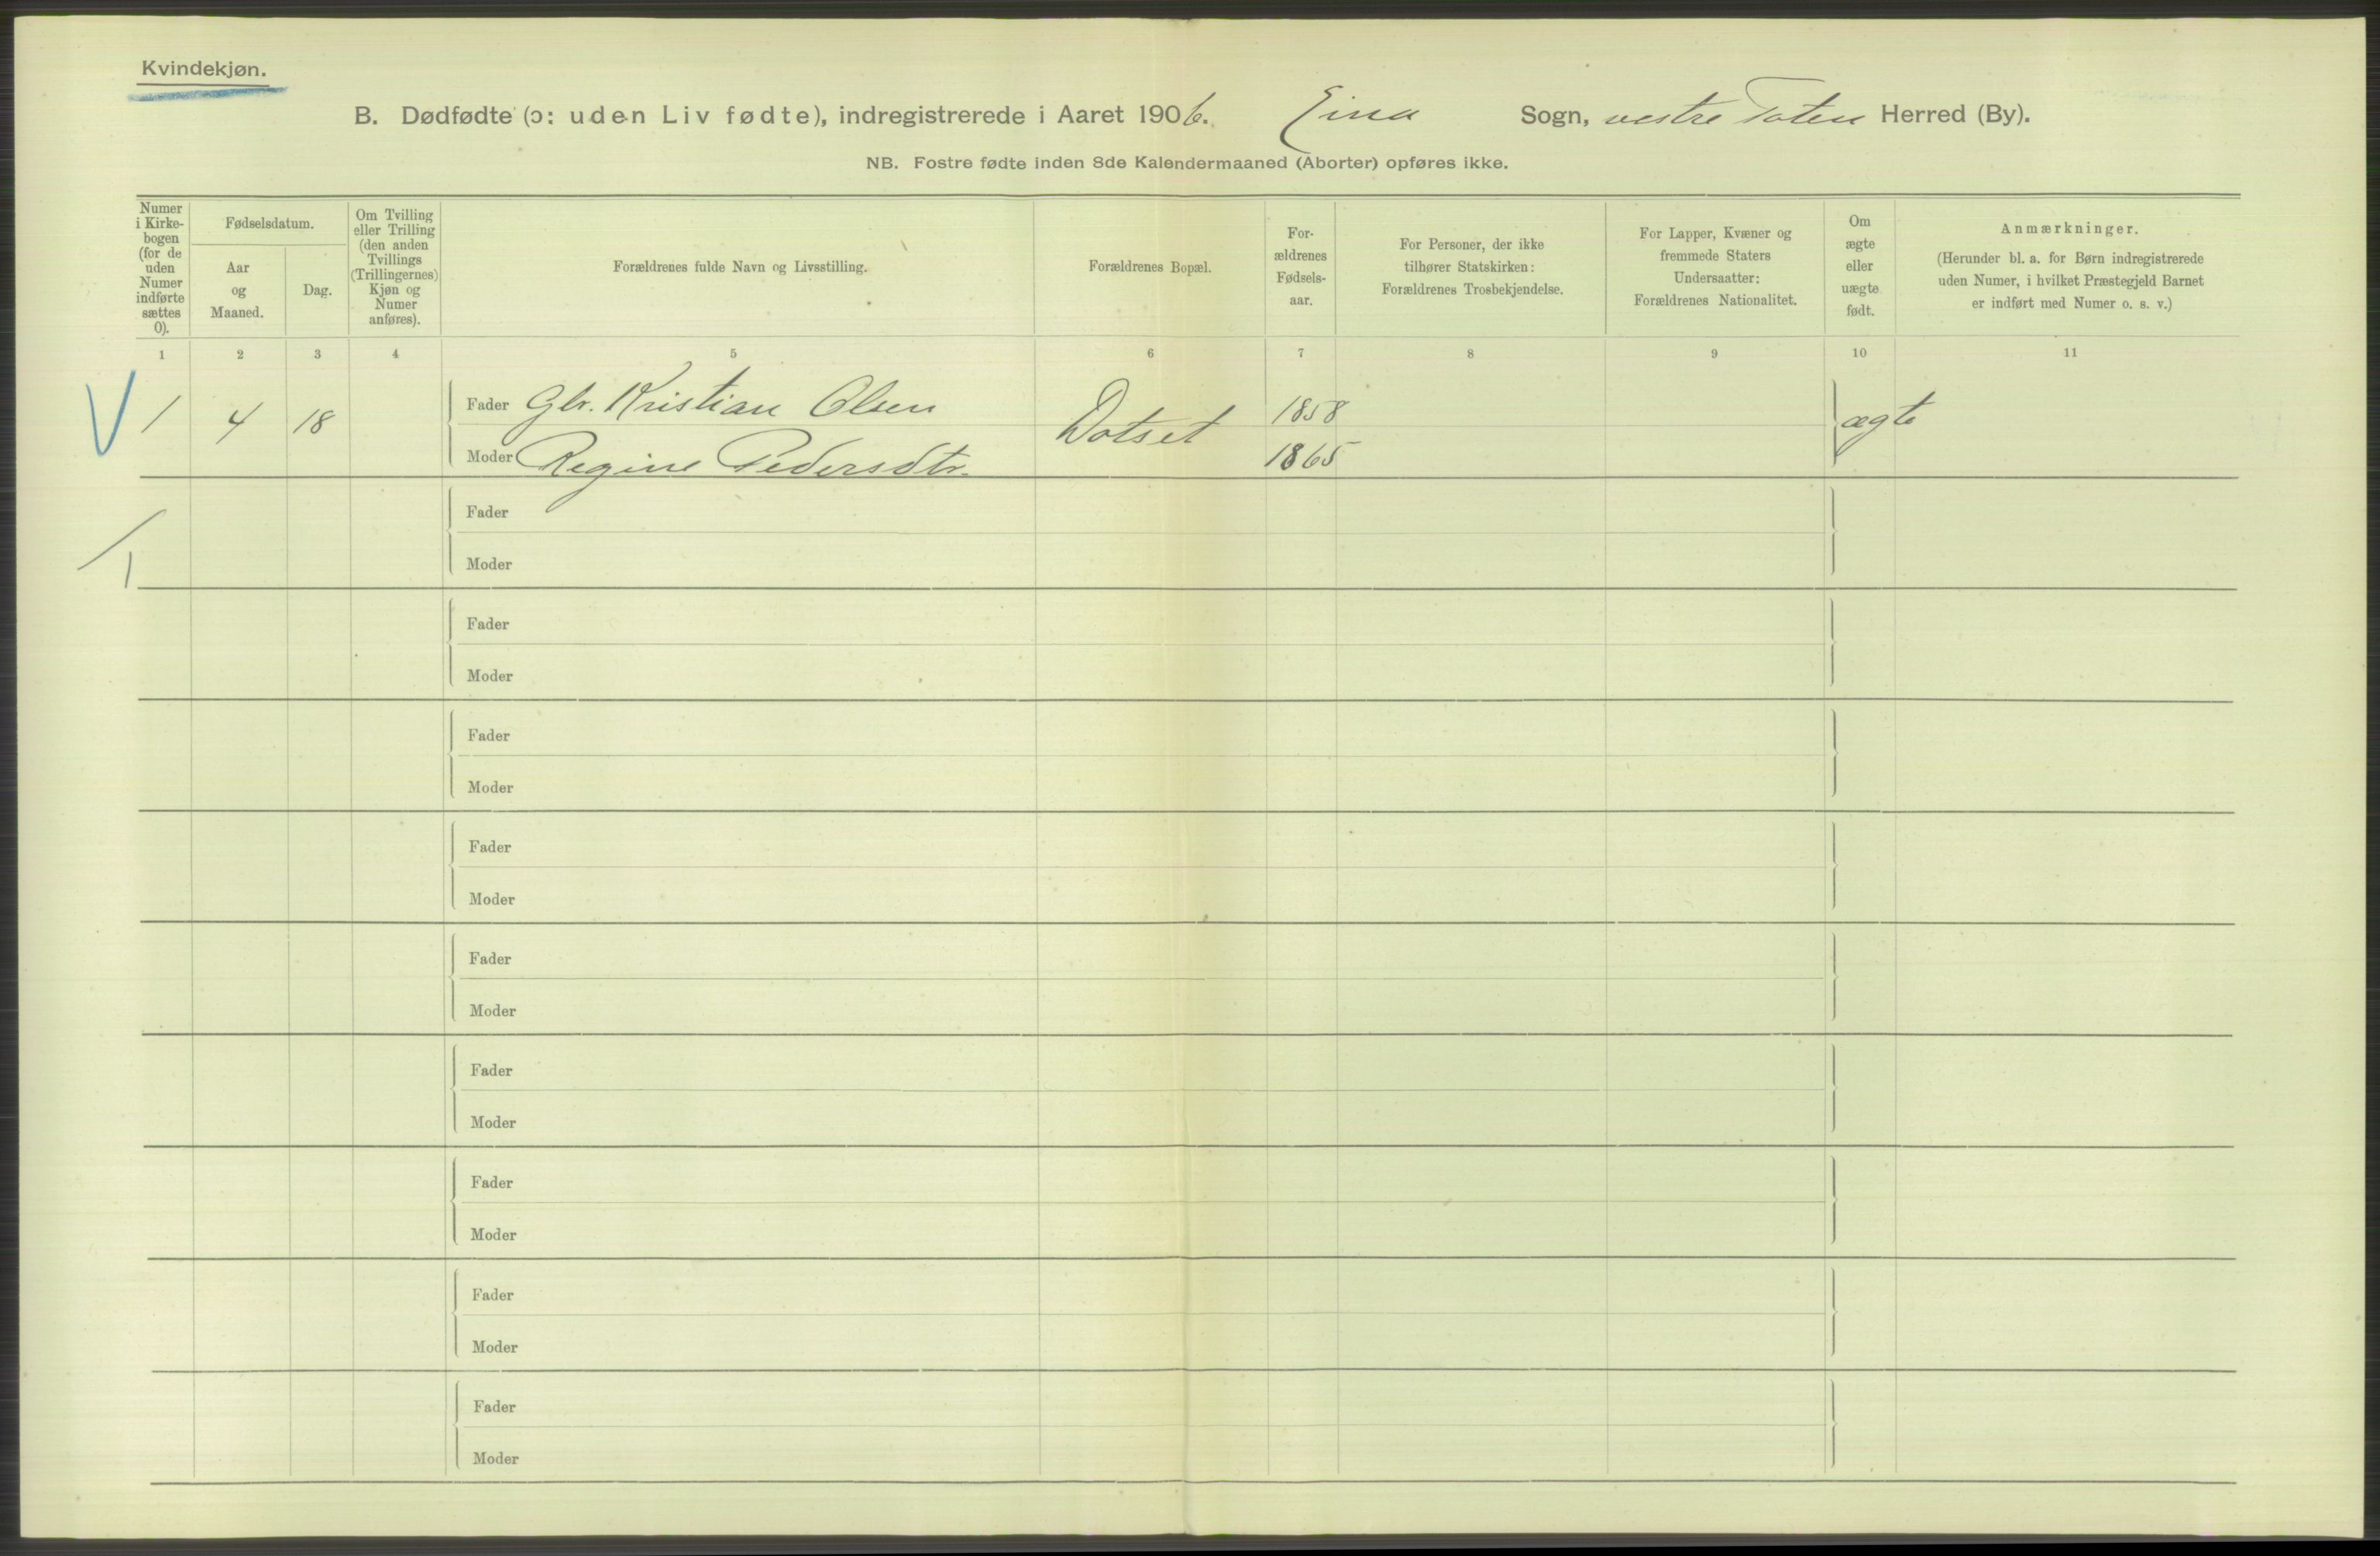 Kvindekjøn.
B. Dødfødte (ɔ: uden Liv fødte), indregistrerede i Aaret 1906. Eina Sogn, vestre Toten Herred (By).
NB. Fostre fødte inden 8de Kalendermaaned (Aborter) opføres ikke.
Numer
i Kirke-
bogen
(for de
uden
Numer
indførte
sættes
0).
Fødselsdatum.
Aar
og
Maaned.
Dag.
Om Tvilling
eller Trilling
(den anden
Tvillings
(Trillingernes)
Kjøn og
Numer
anføres).
Forældrenes fulde Navn og Livsstilling.
Forældrenes Bopæl.
For-
ældrenes
Fødsels-
aar.
For Personer, der ikke
tilhører Statskirken:
Forældrenes Trosbekjendelse.
For Lapper, Kvæner og
fremmede Staters
Undersaatter:
Forældrenes Nationalitet.
Om
ægte
eller
uægte
født.
Anmærkninger.
(Herunder bl. a. for Børn indregistrerede
uden Numer, i hvilket Præstegjeld Barnet
er indført med Numer o. s. v.)
1 2 3 4 5 6 7 8 9 10 11
1 4 18 Fader Gbr. Kristian Olsen Dotset 1858 ægte
Moder Regine Pedersdtr. 1865
Fader
1 Moder
Fader
Moder
Fader
Moder
Fader
Moder
Fader
Moder
Fader
Moder
Fader
Moder
Fader
Moder
Fader
Moder